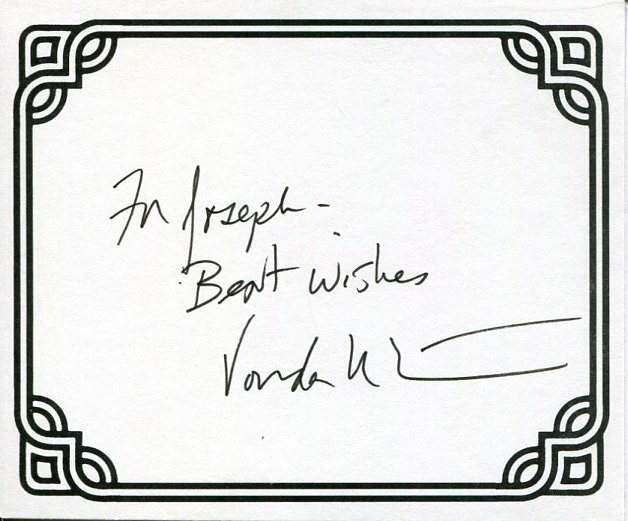 For Joseph -
Best Wishes
Vonda N